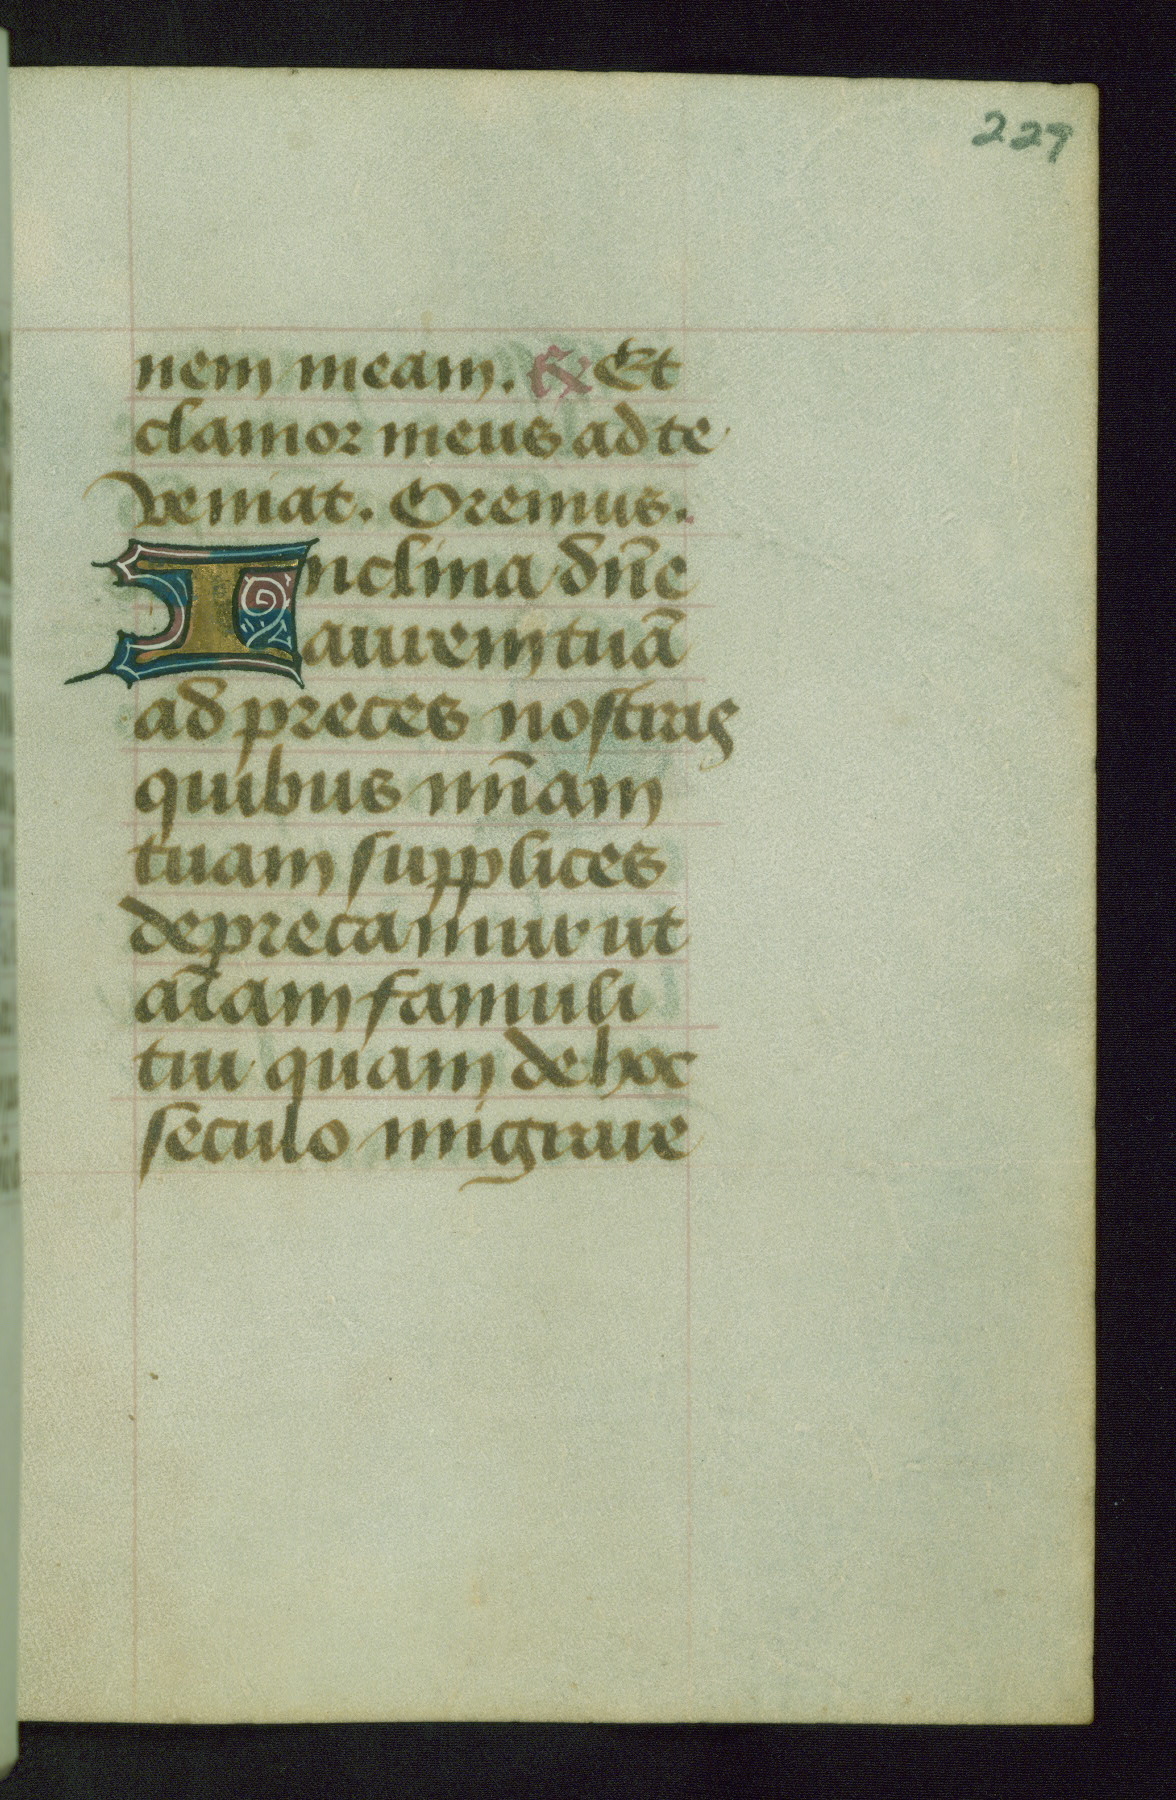 229
nem meam. ℟ Et
clamor meus ad te
veniat. Oremus.
Inclina dn̄e
aurem tuā
ad preces nostras
quibus mīam
tuam supplices
deprecamur ut
aīam famuli
tui quam de hoc
seculo migrare